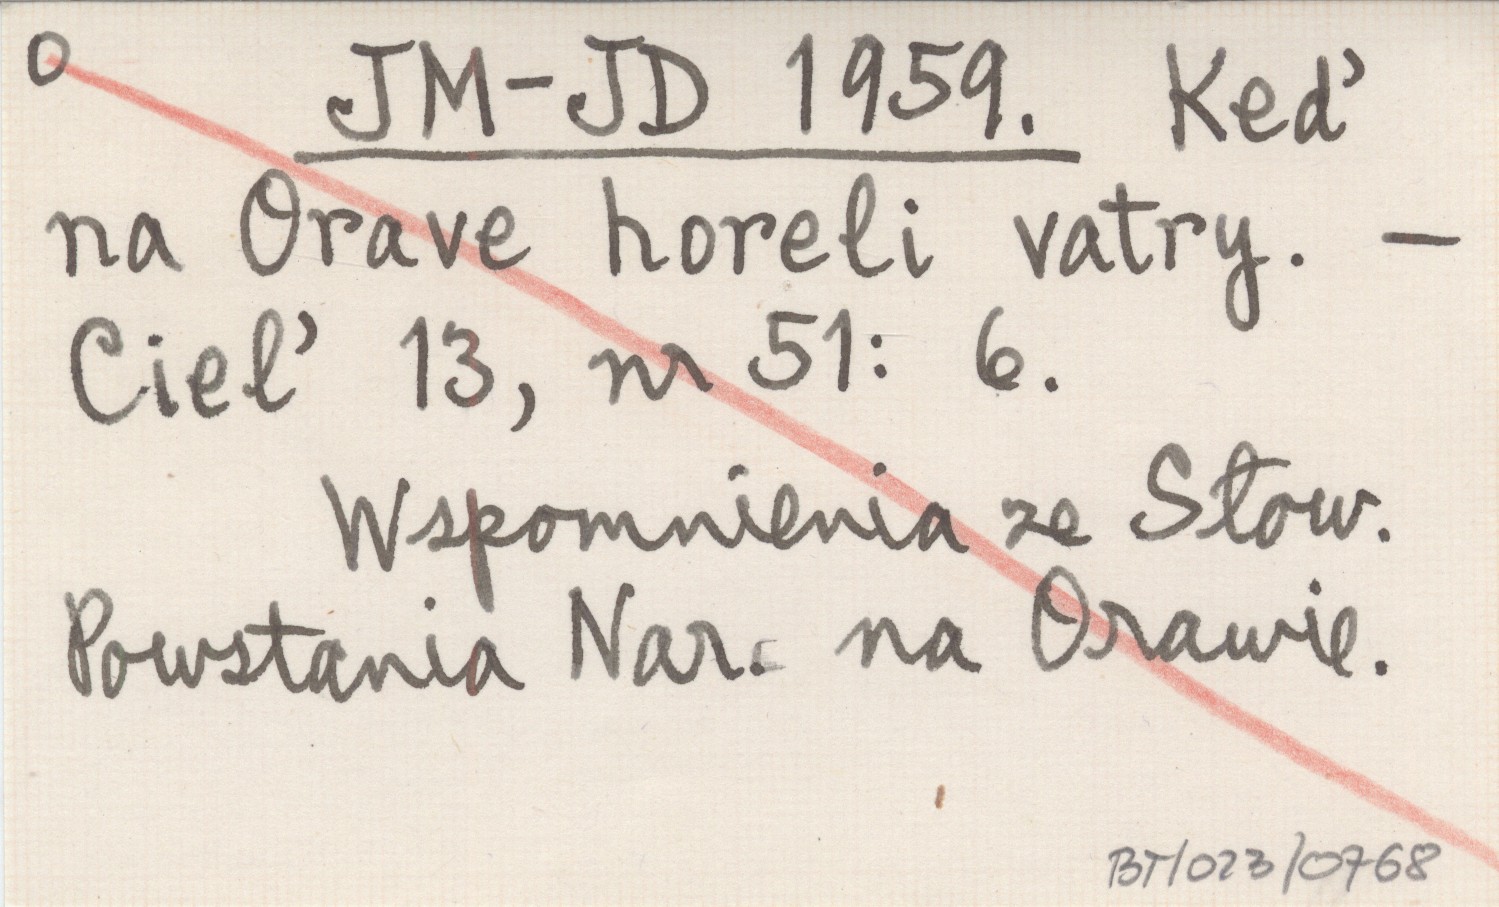 O JM-JD 1959. Keď
na Orave horeli vatry. —
Cieľ 13, nr 51: 6.
Wspomnienia ze Słow.
Powstania Nar. na Orawie.
BT/023/0768